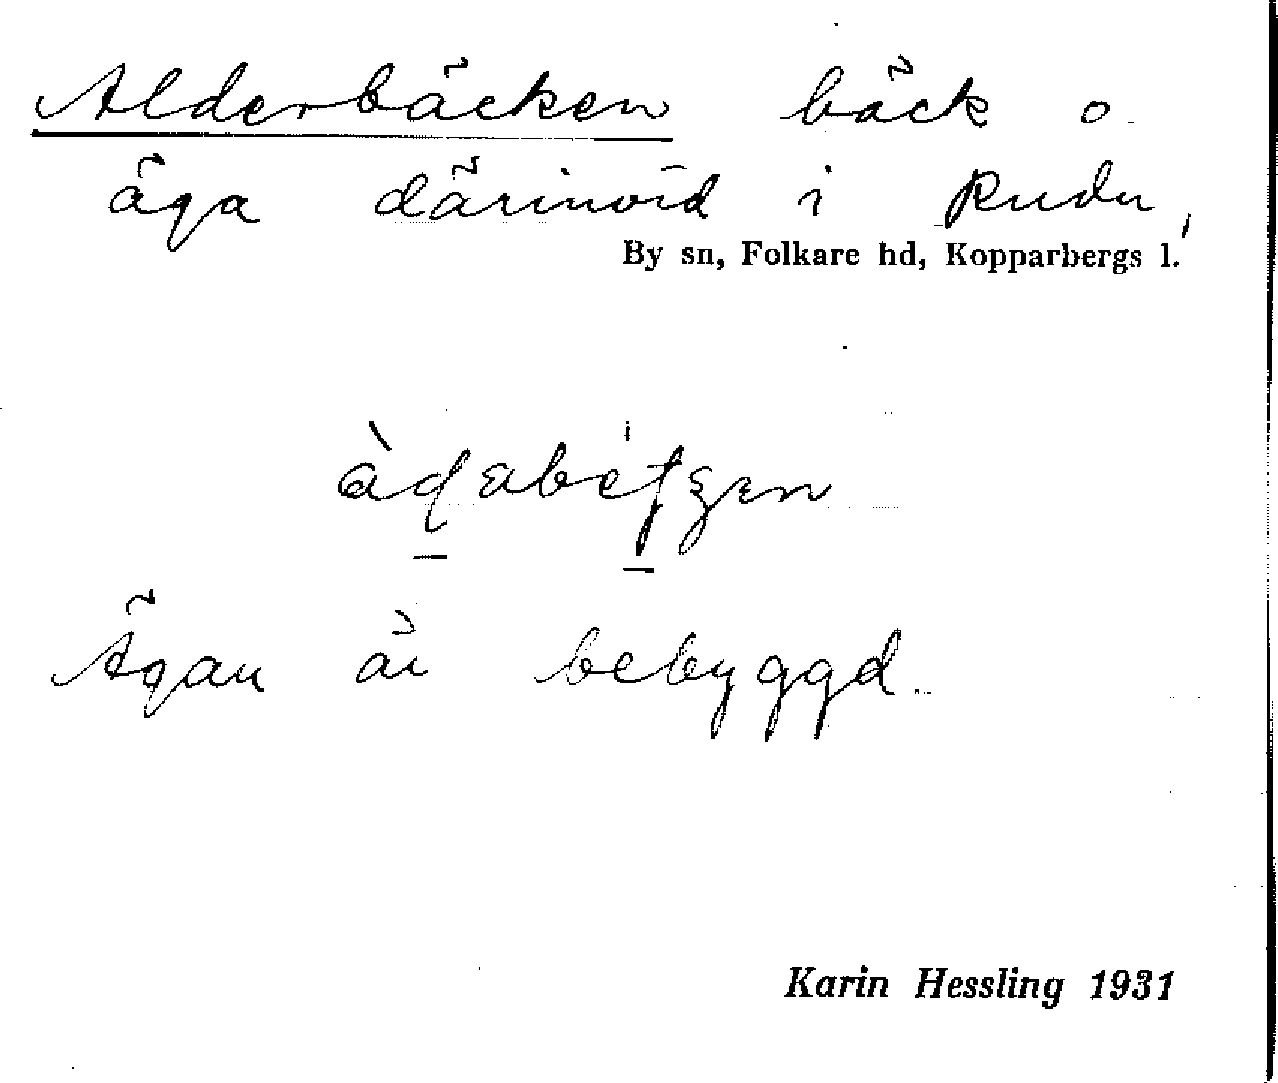 Alderbäcken bäck o
äga därinvid i Rudu,
By sn, Folkare hd, Kopparbergs l.
Ägan är bebyggd.
Karin Hessling 1931